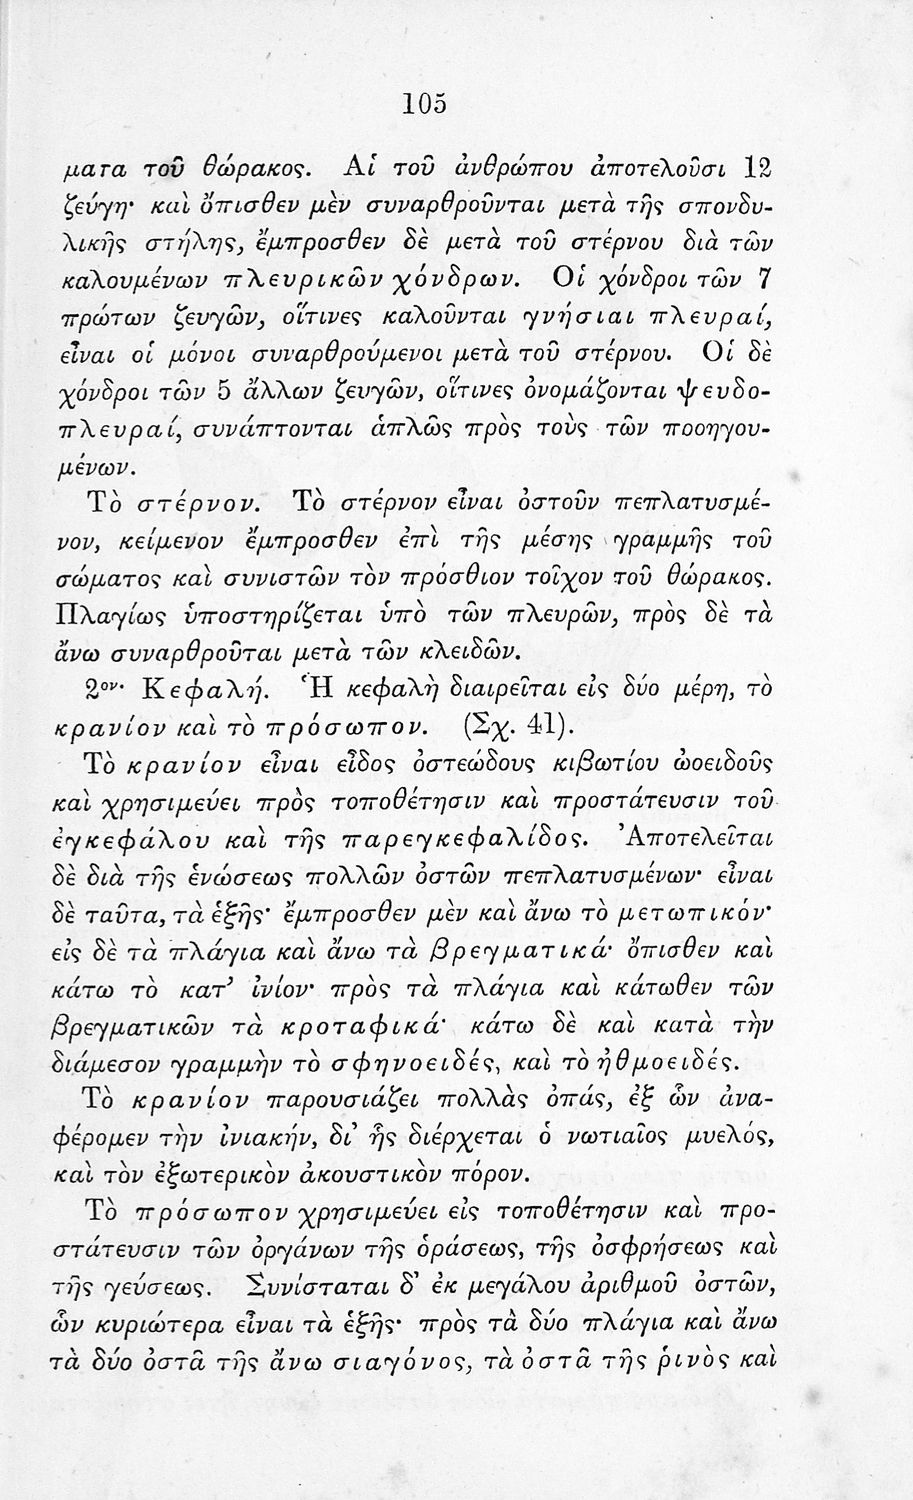 105
ματα τοῦ θώρακος. Αἱ τοῦ ἀνθρώπου ἀποτελοῦσι 12
ζεύγη· καὶ ὄπισθεν μὲν συναρθροῦνται μετὰ τῆς σπονδυ-
λικῆς στήλης, ἔμπροσθεν δὲ μετὰ τοῦ στέρνου διὰ τῶν
καλουμένων πλευρικῶν χόνδρων. Οἱ χόνδροι τῶν 7
πρώτων ζευγῶν, οἵτινες καλοῦνται γνήσιαι πλευραί,
εἶναι οἱ μόνοι συναρθρούμενοι μετὰ τοῦ στέρνου. Οἱ δὲ
χόνδροι τῶν 5 ἄλλων ζευγῶν, οἵτινες ὀνομάζονται ψευδο-
πλευραί, συνάπτονται ἁπλῶς πρὸς τοὺς τῶν ποοηγου-
μένων.
Τὸ στέρνον. Τὸ στέρνον εἶναι ὀστοῦν πεπλατυσμέ-
νον, κείμενον ἔμπροσθεν ἐπὶ τῆς μέσης γραμμῆς τοῦ
σώματος καὶ συνιστῶν τὸν πρόσθιον τοῖχον τοῦ θώρακος.
Πλαγίως ὑποστηρίζεται ὑπὸ τῶν πλευρῶν, πρὸς δὲ τὰ
ἄνω συναρθροῦται μετὰ τῶν κλειδῶν.
2ον· Κεφαλή. Ἡ κεφαλὴ διαιρεῖται εἰς δύο μέρη, τὸ
κρανίον καὶ τὸ πρόσωπον. (Σχ. 41).
Τὸ κρανίον εἶναι εἶδος ὀστεώδους κιβωτίου ὠοειδοῦς
καὶ χρησιμεύει πρὸς τοποθέτησιν καὶ προστάτευσιν τοῦ
ἐγκεφάλου καὶ τῆς παρεγκεφαλίδος. Ἀποτελεῖται
δὲ διὰ τῆς ἑνώσεως πολλῶν ὀστῶν πεπλατυσμένων· εἶναι
δὲ ταῦτα, τὰ ἑξῆς· ἔμπροσθεν μὲν καὶ ἄνω τὸ μετωπικόν·
εἰς δὲ τὰ πλάγια καὶ ἄνω τὰ βρεγματικά· ὄπισθεν καὶ
κάτω τὸ κατ’ ἰνίον· πρὸς τὰ πλάγια καὶ κάτωθεν τῶν
βρεγματικῶν τὰ κροταφικά· κάτω δὲ καὶ κατὰ τὴν
διάμεσον γραμμὴν τὸ σφηνοειδές, καὶ τὸ ἠθμοειδές.
Τὸ κρανίον παρουσιάζει πολλὰς ὀπάς, ἐξ ὧν ἀνα-
φέρομεν τὴν ἰνιακήν, δι’ ἧς διέρχεται ὁ νωτιαῖος μυελός,
καὶ τὸν ἐξωτερικὸν ἀκουστικὸν πόρον.
Τὸ πρόσωπον χρησιμεύει εἰς τοποθέτησιν καὶ προ-
στάτευσιν τῶν ὀργάνων τῆς ὁράσεως, τῆς ὀσφρήσεως καὶ
τῆς γεύσεως. Συνίσταται δ’ ἐκ μεγάλου ἀριθμοῦ ὀστῶν,
ὧν κυριώτερα εἶναι τὰ ἑξῆς· πρὸς τὰ δύο πλάγια καὶ ἄνω
τὰ δύο ὀστᾶ τῆς ἄνω σιαγόνος, τὰ ὀστᾶ τῆς ῥινὸς καὶ